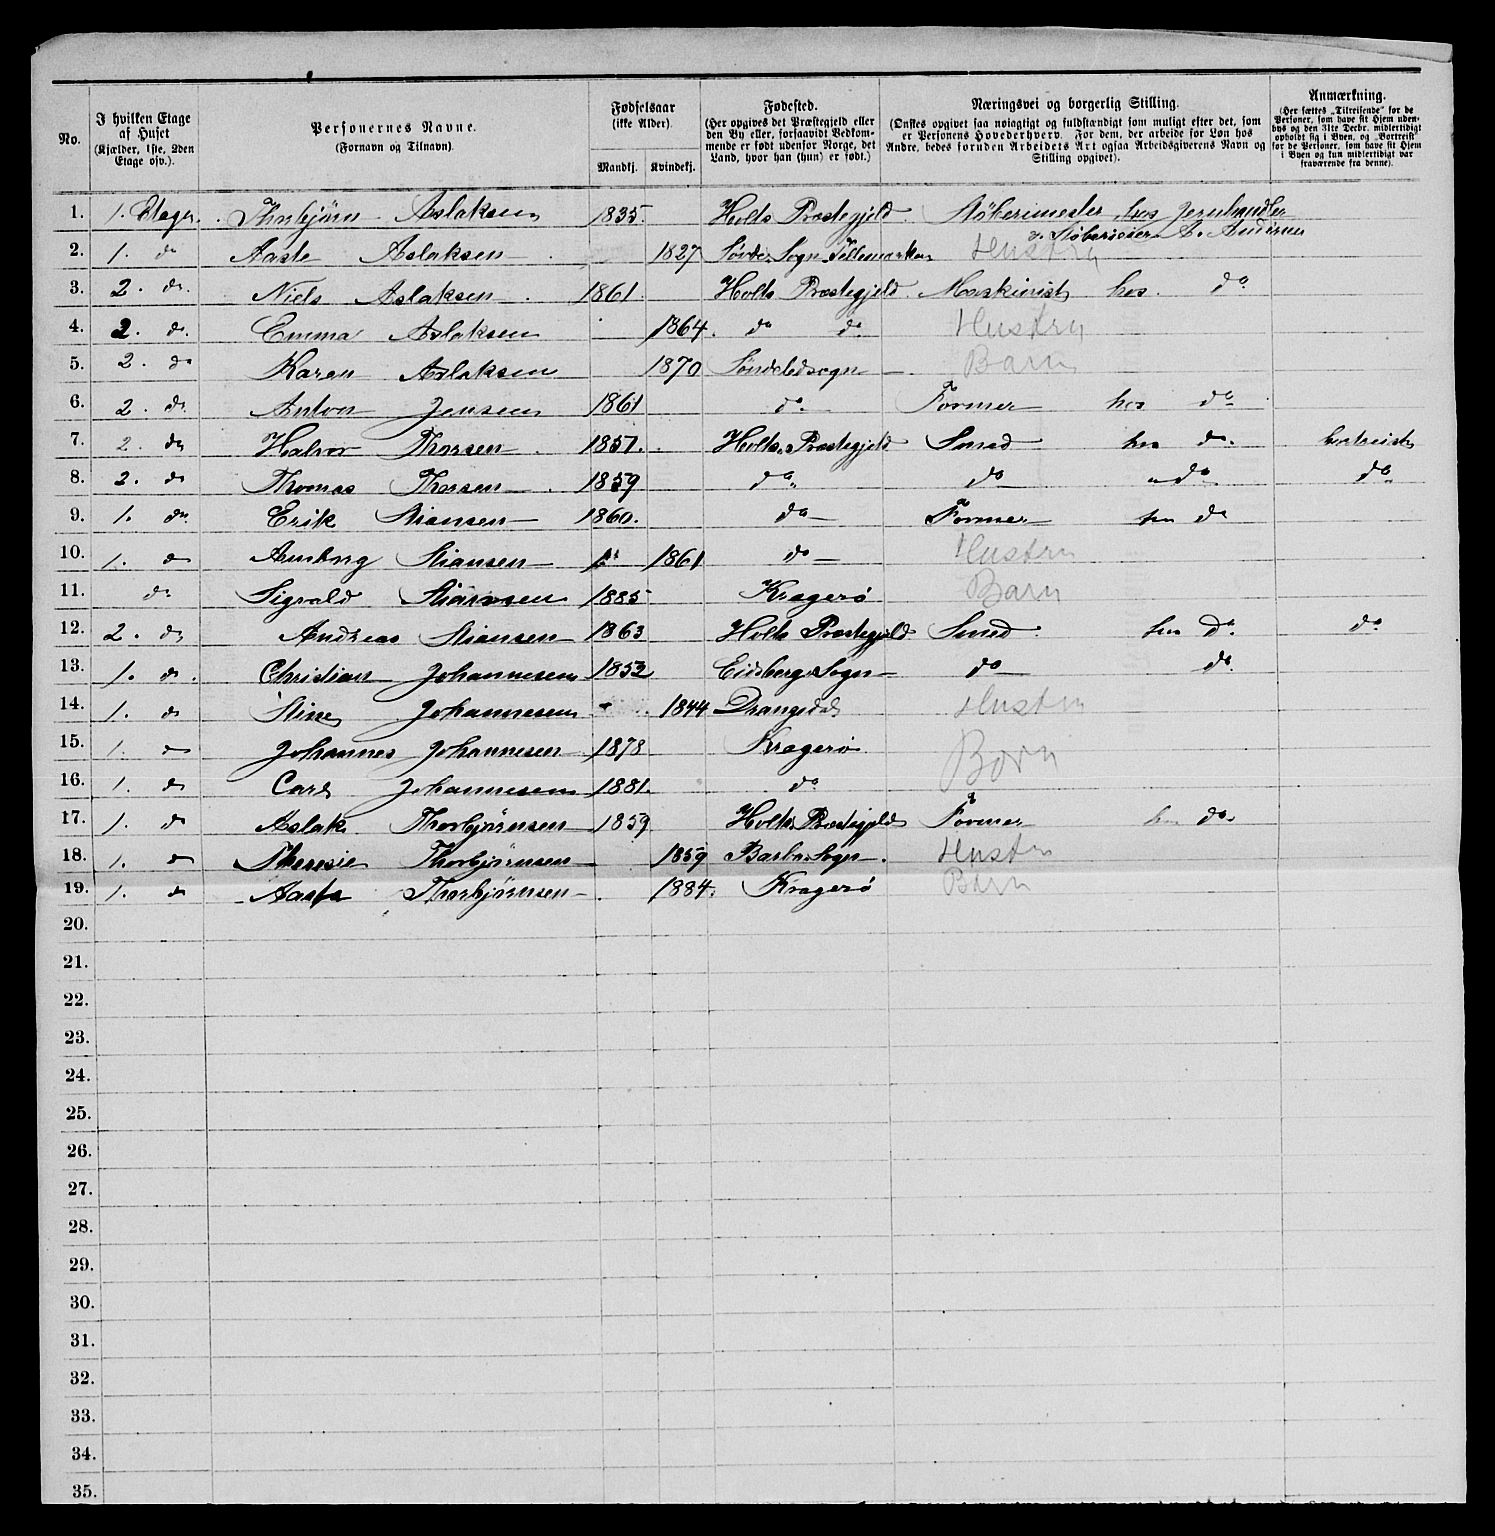 No.
I hvilken Etage
af Huset
(Kjælder, 1ste, 2den
Etage osv.).
Personernes Navne.
(Fornavn og Tilnavn).
Fødselsaar
(ikke Alder).
Mandkj. Kvindekj.
Fødested.
(Her opgives det Præstegjeld eller
den By eller, forsaavidt Vedkom-
mende er født udenfor Norge, det
Land, hvor han (hun) er født.)
Næringsvei og borgerlig Stilling.
(Ønskes opgivet saa nøiagtigt og fuldstændigt som muligt efter det, som
er Personens Hovederhverv. For dem, der arbeide for Løn hos
Andre, bedes foruden Arbeidets Art ogsaa Arbeidsgiverens Navn og
Stilling opgivet).
Anmærkning.
(Her sættes „Tilreisende“ for de
Personer, som have sit Hjem uden-
bys og den 31te Decbr. midlertidigt
opholdt sig i Byen, og „Bortreist“
for de Personer, som have sit Hjem
i Byen og kun midlertidigt var
fraværende fra denne).
1. 1. Etage. Thorbjørn Aslaksen 1835 Holts Præstegjeld Støberimester hos Jernhandler
2. 1. do Aaste Aslaksen 1827 Sogn Tellemarken Hustru
3. 2. do. Niels Aslaksen 1861 Holts Præstegjeld. Maskinist hos do
4. 2. do. Emma Aslaksen 1864. do do Hustru
5. 2. do Karen Aslaksen 1870 Søndeledsogn Barn
6. 2. do. Anton Jensen 1861 do Former hos do
7. 2. do Halvor Thorsen 1857. Holts Præstegjeld Smed hos do. bortreist
8. 2. do Thomas Thorsen 1859 do do do do
9. 1. do. Erik Stiansen 1860. do Former hos do
10. 1. do Stiansen 1861 do Hustru
11. do Sigvald Stiansen 1885 Kragerø Barn
12. 2. do Andreas Stiansen 1863 Holts Præstegjeld Smed hos do. do
13. 1. do. Christian Johannesen 1852 Eidsberg Sogn do do
14. 1. do Stine Johannesen 1844 Drangedal Hustru
15. 1. do Johannes Johannesen 1878 Kragerø Børn
16. 1. do Carl Johannesen 1881. do
17. 1. do Aslak Thorbjørnsen 1859 Holts Præstegjeld Former hos do.
18. 1. do Theresie Thorbjørnsen 1859 Barbu Sogn. Hustru
19. 1. do Aaste Thorbjørnsen 1884. Kragerø Barn
20.
21.
22.
23.
24.
25.
26.
27.
28.
29.
30.
31.
32.
33.
34.
35.